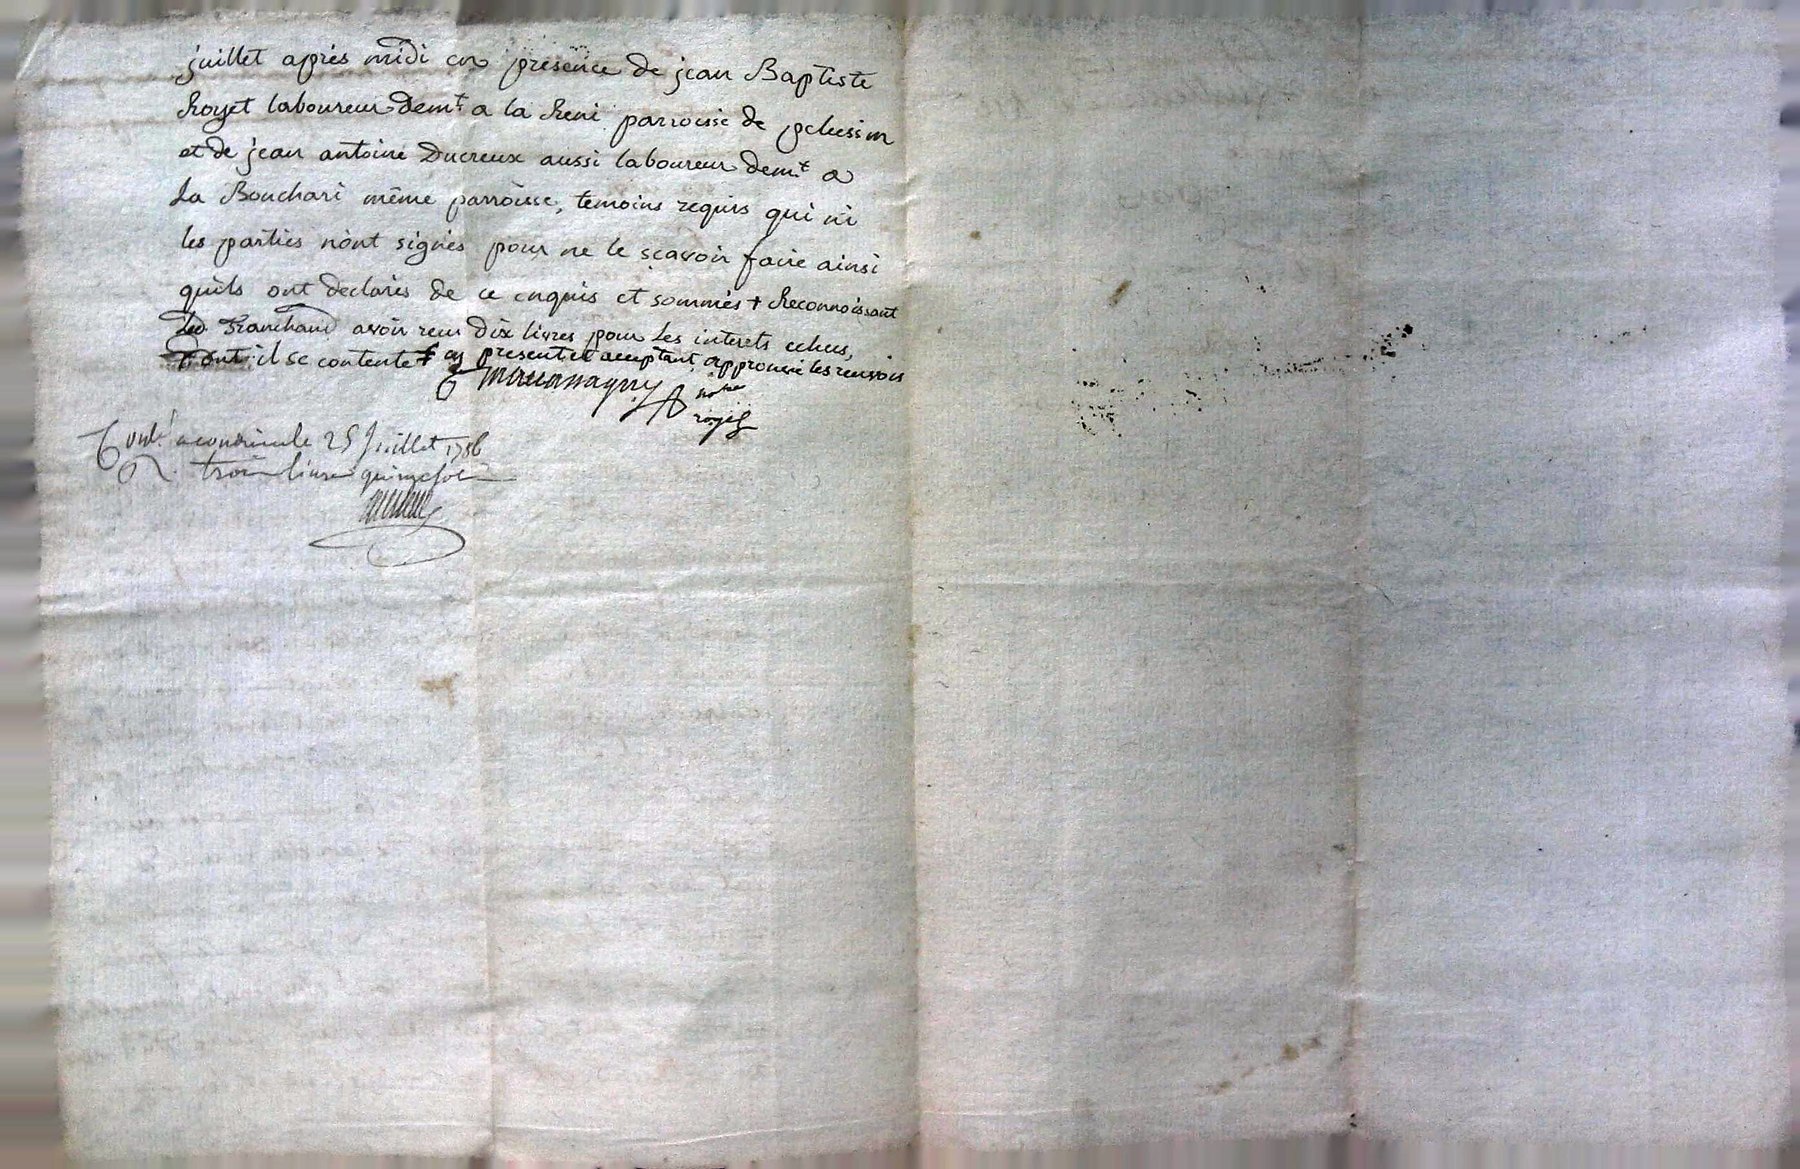 juillet après midi en présence de jean Baptiste
Royet laboureur demt a la Reni parroisse de pelussin
et de jean antoine Ducreux aussi laboureur demt a
La Bouchari même parroisse, temoins requis qui ni
les parties n'ont signés pour ne le scavoir faire ainsi
quils ont declarés de ce enquis et sommés + Reconnoissant
Led. Franchand avoir reçu Dix livres pour les interets echus,
dont il se contente present et acceptant approuvé les renvois
nore
royal
a condrieu le 25 Juillet 1786
R. trois livres quinze sols